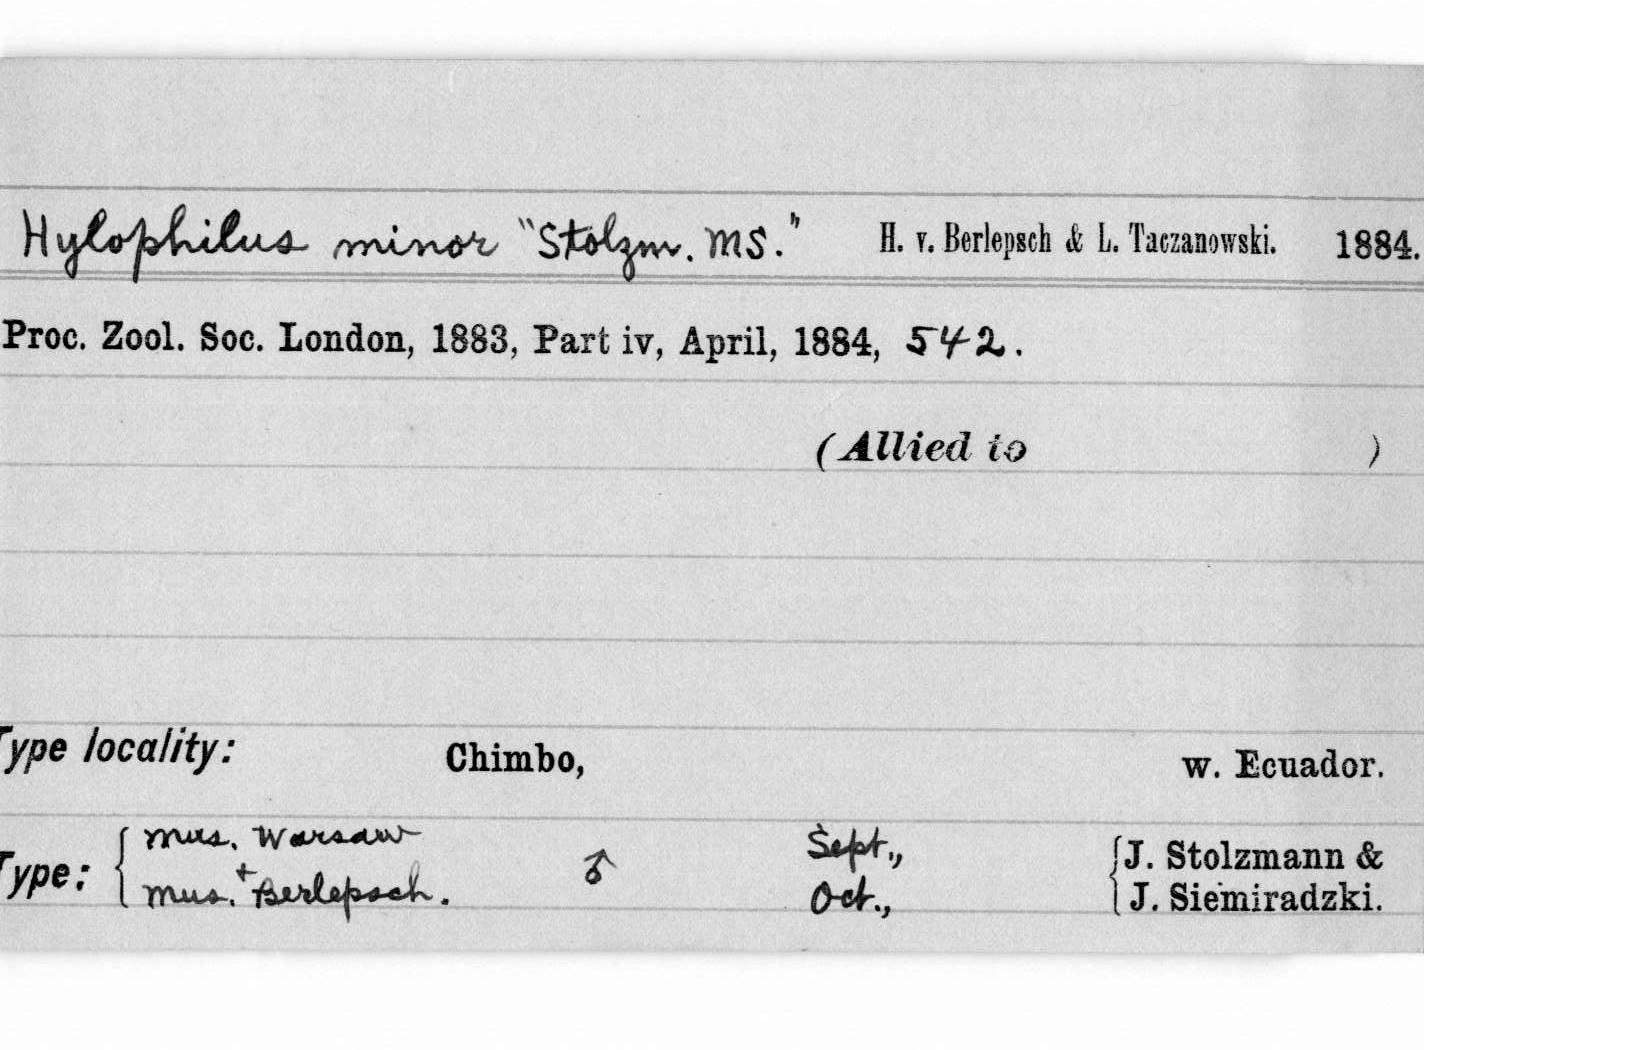 Hylophilus minor "Stolzm. MS." H. v. Berlepsch & L. Taczanowski. 1884.
Proc. Zool. Soc. London, 1883, Part iv, April, 1884, 542.
(Allied to )
Type locality: Chimbo, w. Ecuador.
Type: { Mus. Warsaw ♂ Sept., { J. Stolzmann &
+
Mus. Berlepsch. Oct., J. Siemiradzki.